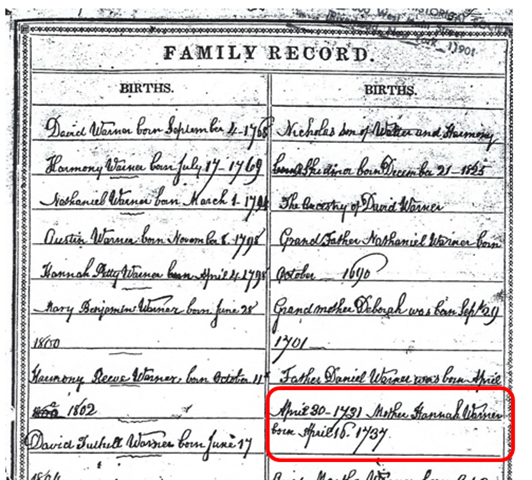 HISTORICAL SOCIETY
11901
FAMILY RECORD.
BIRTHS.
David Warner born September 4-1768
Harmony Warner born July 17-1769
Nathaniel Warner born March 1-1794
Austin Warner born November 8. 1795
Hannah Petty Warner born April 2 1798
Mary Benjamin Warner born June 28
1800
Harmony Reeve Warner, born October 11th
1802
David Tuthill Warner born June 17
BIRTHS.
Nicholas son of Walter and Harmony
Skidmor born December 21-1825
The Ancestry of David Warner
Grand Father Nathaniel Warner born
October 1690
Grand mother Deborah was born Sept 29
1701
Father Daniel Warner was born April
April 30-1731 Mother Hannah Warner
born April 16. 1737